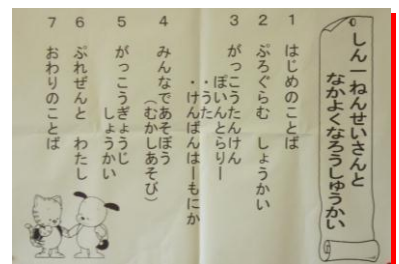 しん一ねんせいさんと
なかよくなろうしゅうかい
1 はじめのことば
2 ぷろぐらむ しょうかい
3 がっこうたんけん
ぽいんとらりー
・うた
・けんばんはーもにか
4 みんなであそぼう
(むかしあそび)
5 がっこうぎょうじ
しょうかい
6 ぷれぜんと わたし
7 おわりのことば